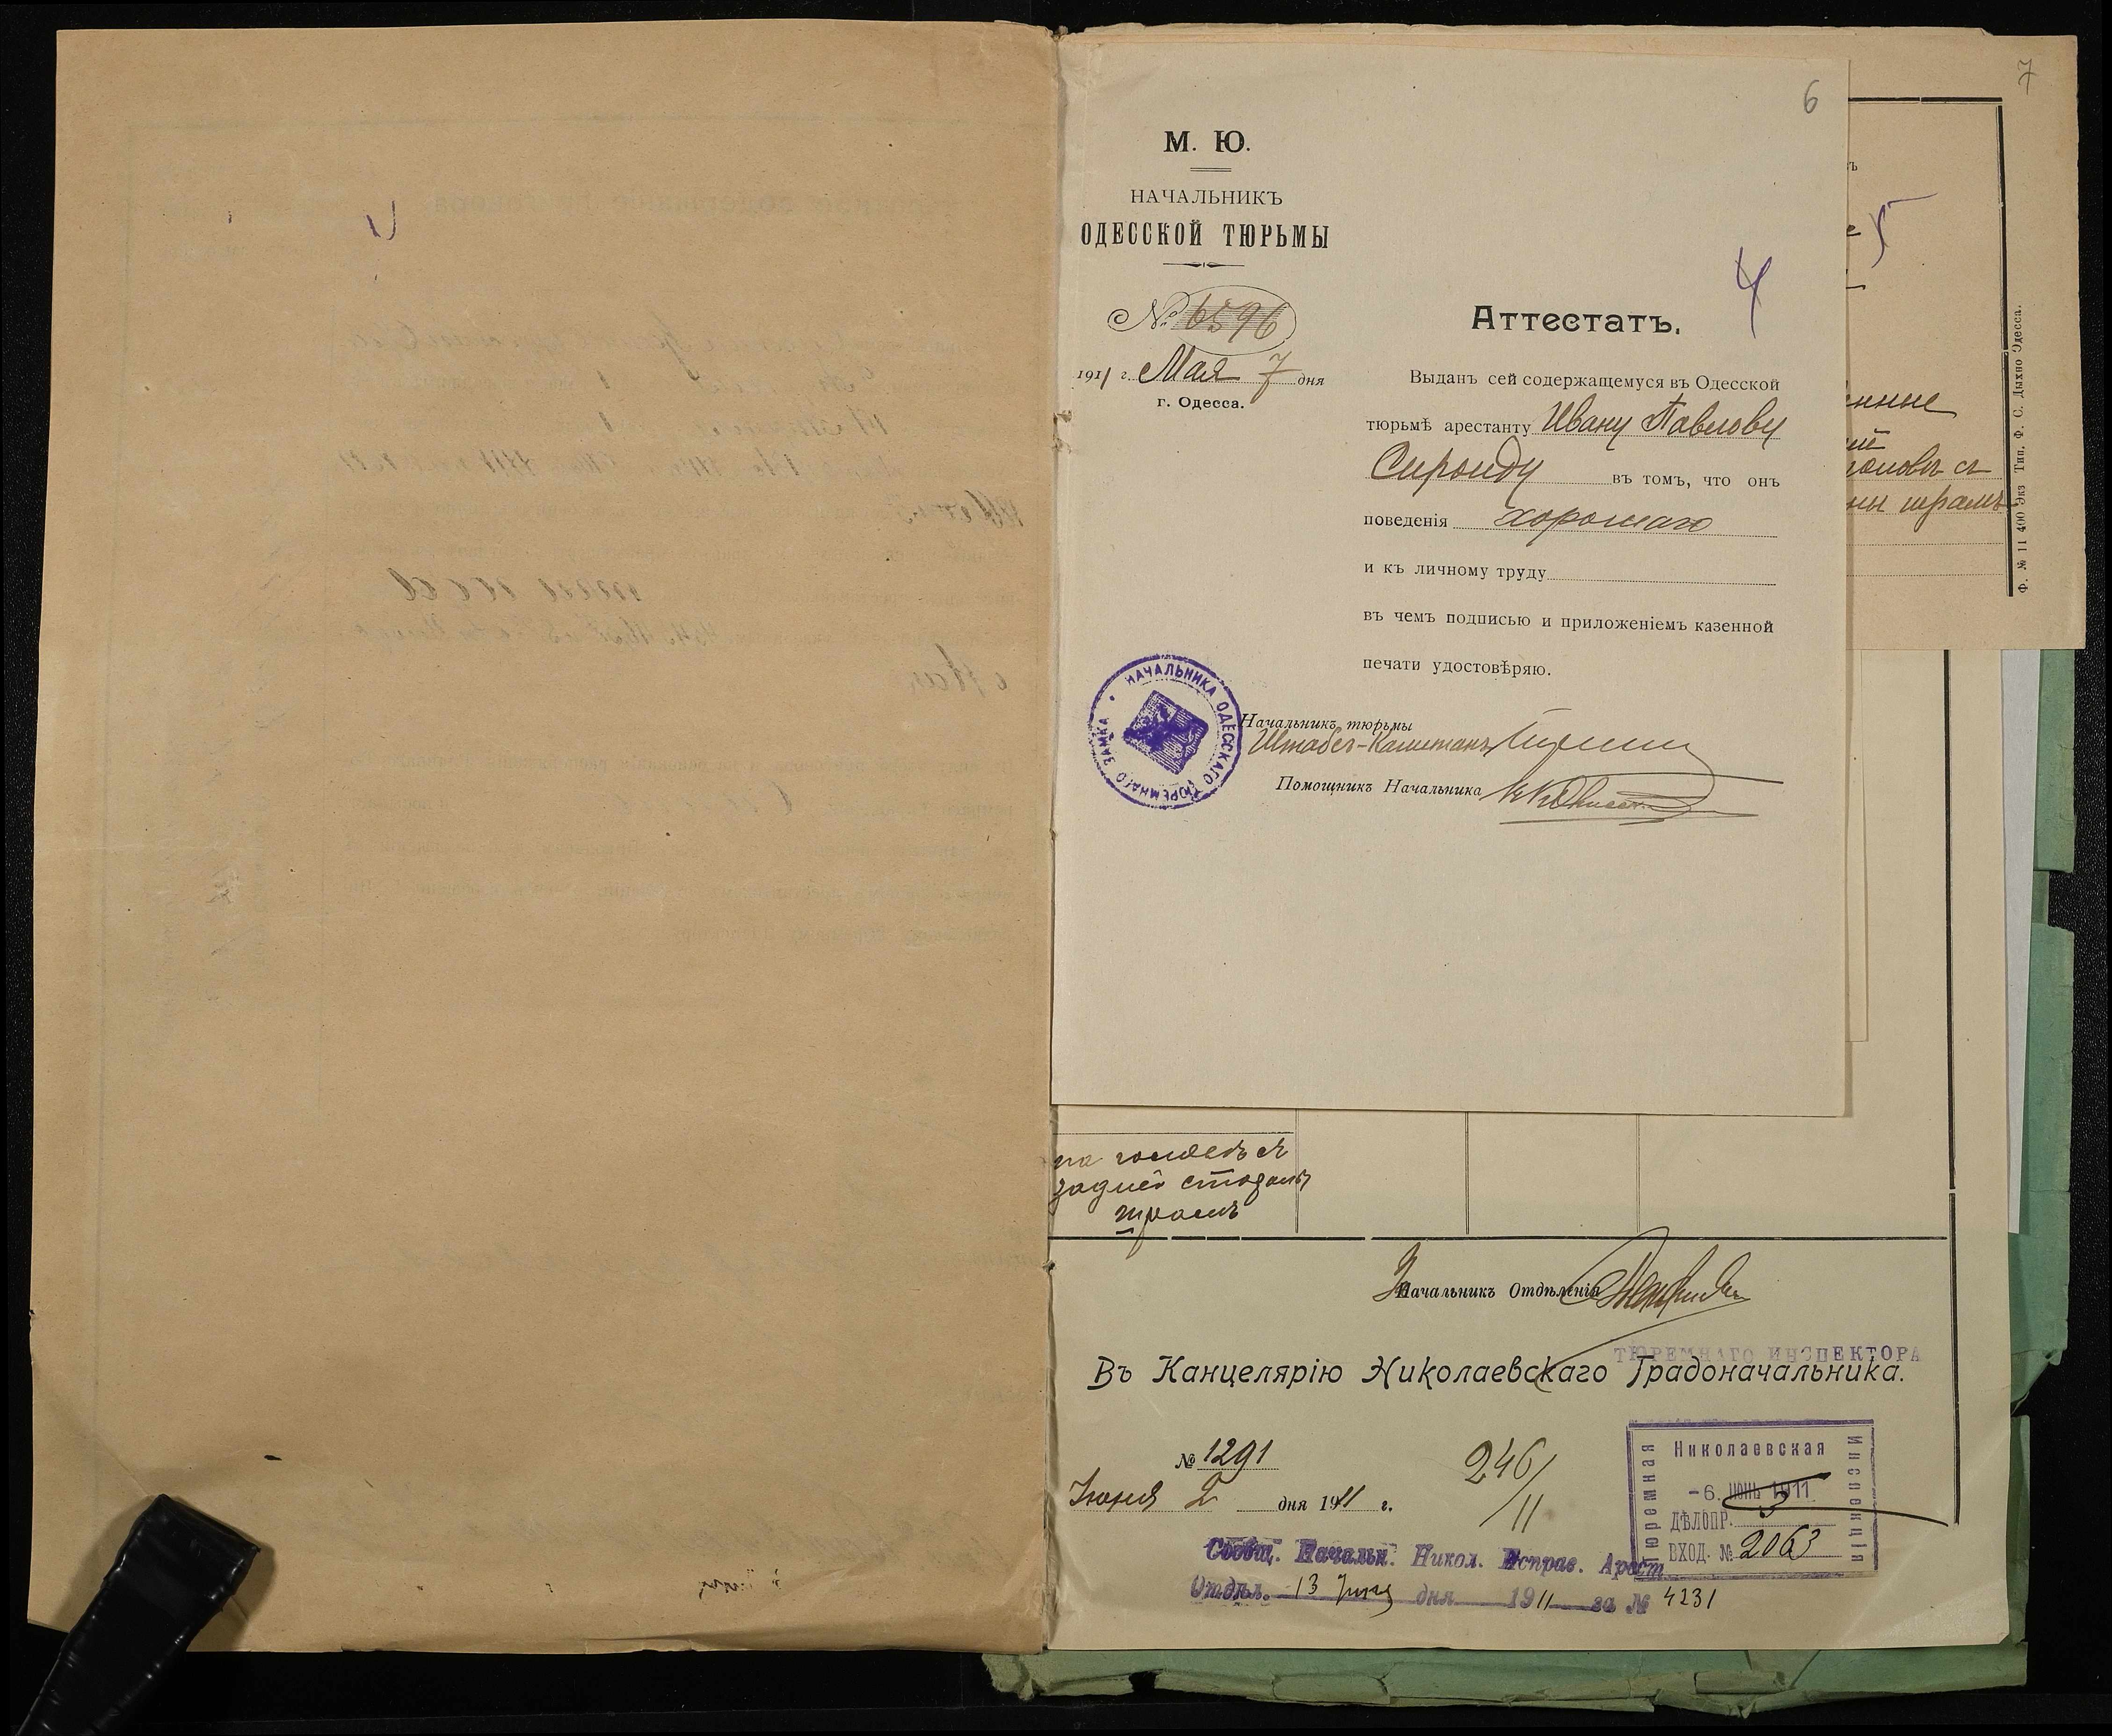 6
7
М. Ю.
НАЧАЛЬНИКЪ
ОДЕССКОЙ ТЮРЬМЫ
№ 6596
1911 г. Мая 7 дня
г. Одесса.
4
Аттестатъ.
Выданъ сей содержащемуся въ Одесской
тюрьмѣ арестанту Ивану Павлову
въ томъ, что онъ
поведенія хорошаго
и къ личному труду
въ чемъ подписью и приложеніемъ казенной
печати удостовѣряю.
НАЧАЛЬНИКА ОДЕССКАГО ТЮРЕМНАГО ЗАМКА
Начальникъ тюрьмы
Штабсъ-Капитанъ
Помощникъ Начальника
5
шрамъ
Ф. № 11 400 Экз Тип. Ф. С. Дыхно Одесса.
шрамъ
Начальникъ Отдѣленія
ТЮРЕМНАГО ИНСПЕКТОРА
Въ Канцелярію Николаевскаго Градоначальника.
№ 1291
Іюня 2 дня 1911 г.
246/11
Николаевская
Тюремная
Инспекція
-6. ІЮНЬ 1911
ДѢЛОПР. 3
ВХОД. № 2063
Сообщ. Начальн. Никол. Исправ. Арест
Отдѣл. 13 Іюня дня 1911 за № 4231